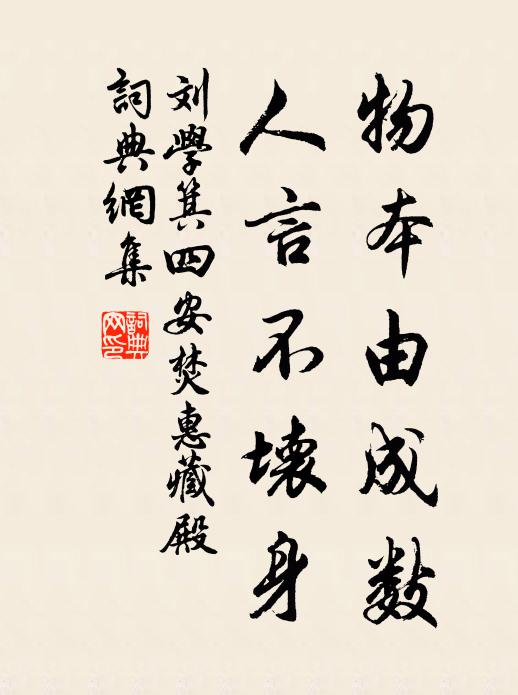 物本由成数
人言不壞身
刘學箕四安焚惠藏殿
詞典網集
詞典
网印